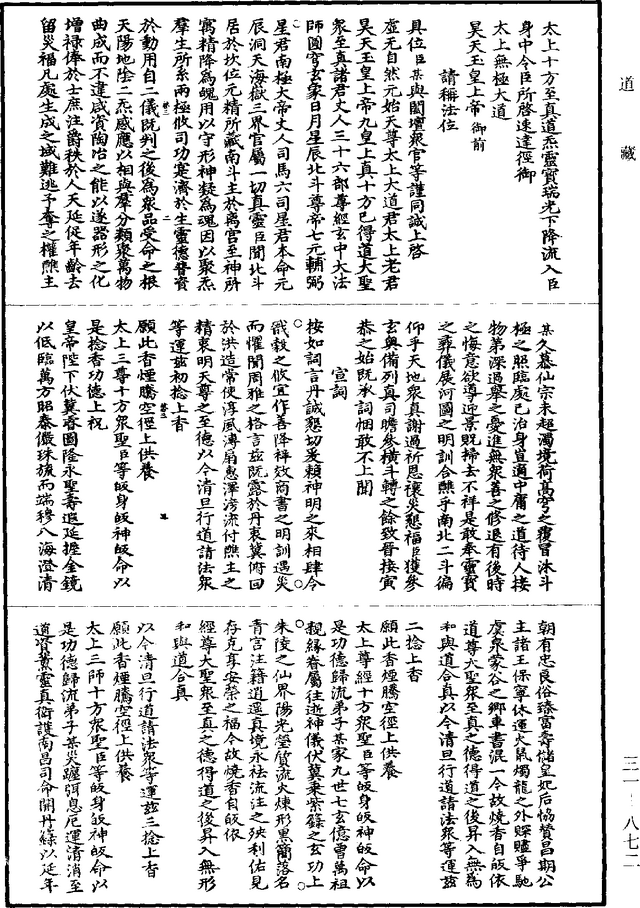 道藏
太上十方至真道炁靈寶瑞光下降流入臣
身中令臣所啓速達徑御
太上無極大道
昊天玉皇上帝御前
請稱法位
具位臣某與閤壇衆官等謹同誠上啓
虛无自然元始天尊太上大道君太上老君
昊天玉皇上帝九皇上真十方已得道大聖
衆至真諸君丈人三十六部尊經玄中大法
師國字玄象日月星辰北斗尊帝七元輔弼
星君南極大帝丈人司馬六司星君本命元
辰洞天海嶽三界官屬一切真靈臣聞北斗
居於坎位元精所藏南斗主於离宮至神所
寓精降為魄用以守形神凝為魂因以聚炁
羣生所系兩極攸司功寔濟於生靈德普資
於動用自二儀既判之後為衆品受命之根
天陽地陰二炁感應以相與羣分類聚萬物
曲成而不違咸資陶冶之能以遂器形之化
增祿俸於士庶注爵秩於人天延促年齡去
留災福凡處生成之域難逃予奪之權醮主
某久慕仙宗未超濁境荷高穹之覆冒沐斗
極之照臨處己治身豈適中庸之道待人接
物第深過舉之憂進無衆善之修退有後時
之悔意欲導迎景貺掃去不祥是敢奉靈寶
之彝儀展河圖之明訓合醮乎南北二斗徧
仰乎天地衆真謝過祈恩禳災懇福臣獲參
玄奧備列真司瞻參橫斗轉之餘致晉接寅
恭之始既承詞悃敢不上聞
宣詞
按如詞言丹誠懇切爰賴神明之來相肆令
戩穀之攸宜作善降祥效商書之明訓遇災
而懼聞周雅之格言茲既露於丹衷冀俯回
於洪造常使淳風溥扇惠澤滂流付醮主之
精衷明天尊之至德以今清旦行道請法衆
等運茲初捻上香
願此香煙騰空徑上供養
太上三尊十方衆聖臣等皈身皈神皈命以
是捻香功德上祝
皇帝陛下伏冀睿圖隆永聖壽遐延握金鏡
以低臨萬方昭泰儼珠旒而端穆八海澄清
朝有忠良俗臻富壽儲皇妃后協贊昌期公
主諸王保寧休運火鼠燭龍之外賝贐爭馳
虞泉蒙谷之鄉車書混一令故燒香自皈依
道尊大聖衆至真之德得道之後昇入無為
和與道合真以今清旦行道請法衆等運茲
二捻上香
願此香煙騰空徑上供養
太上尊經十方衆聖臣等皈身皈神皈命以
是功德歸流弟子某家九世七玄億曾萬祖
親緣眷屬往逝神儀伏冀乘紫籙之玄功上
朱陵之仙界陽光瑩質流火煉形黑簡落名
青宮注籍逍遥真境永袪流注之殃利佑見
存克享安榮之福今故燒香自皈依
經尊大聖衆至真之德得道之後昇入無形
和與道合真
以今清旦行道請法衆等運茲三捻上香
願此香煙騰空徑上供養
太上三師十方衆聖臣等皈身皈神皈命以
是功德歸流弟子某災躔弭息厄運清消至
道資薰靈真衛護南昌司命開丹籙以延年
三一－八七二